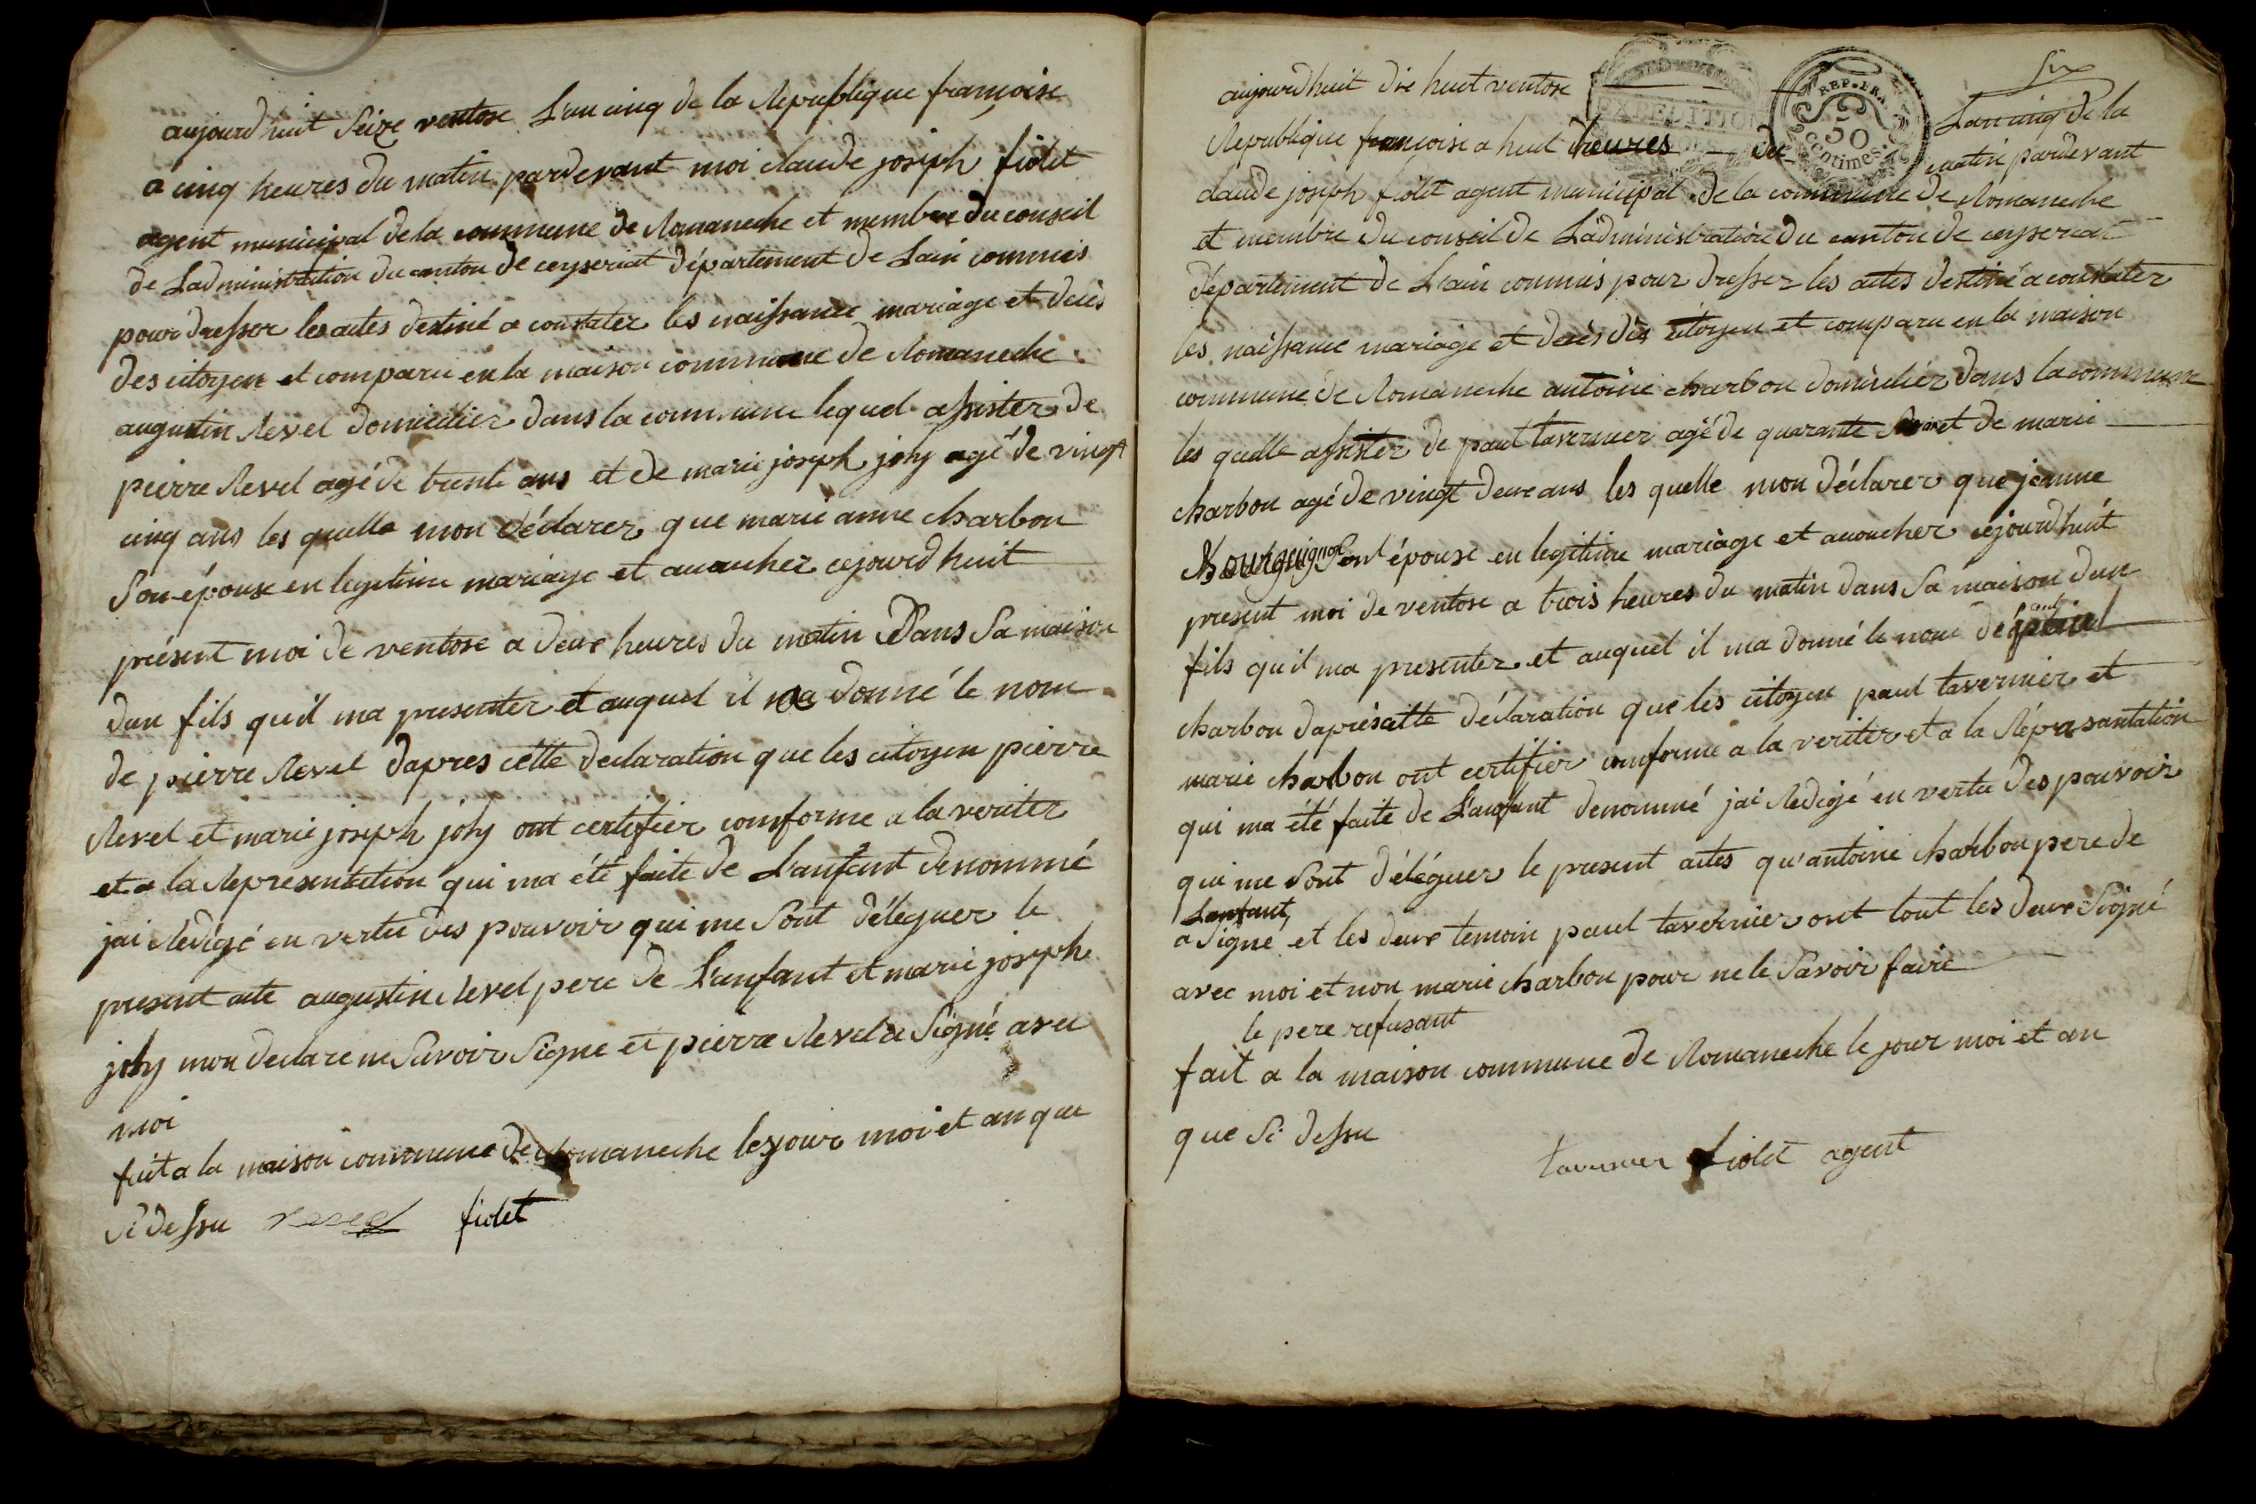 aujourdhuit Seize ventose L'an cinq de la Republique françoise
a cinq heures du matin pardevant moi claude joseph fiolet
agent municipal de la commune de Romaneche et membre du conseil
de Ladministration du canton de ceyseriat département de Lain commis
pour dresser les actes destiné a constater les naissance mariage et decès
des citoyen et comparu en la maison commune de Romaneche
augustin Revel domicilier dans la commune lequel assister de
pierre Revel agé de trente ans et de marie joseph joly agé de vingt
cinq ans les quelle mon déclarer que marie anne charbon
Son épouse en legitime mariage et acoucher cejourdhuit
présent moi de ventose a deux heures du matin Dans Sa maison
dun fils quil ma presenter et auquel il ma donné le nom
de pierre Revel dapres cette declaration que les citoyen pierre
Revel et marie joseph joly ont certifier comforme a la veriter
et a la Representation qui ma été faite de L'anfant denommé
jai Rédigé en vertu des pouvoir qui me Sont déléguer le
present acte augustin Revel pere de L'anfant et marie joseph
joly mon declare ne Savoir Signe et pierre Revel a Signé avec
moi
fait a la maison commune de Romaneche le jour moi et an que
Si dessu revel fiolet
Six
aujourdhuit dix huit ventose Lan cinq de la
REP. FRA.
50
Centimes.
Republique françoise a huit heures du matin pardevant
claude joseph fiolet agent municipal de la commune de Romaneche
et membre du conseil de Ladministration du canton de ceyseriat
département de L'ain commis pour dresser les actes destiné a constater
les naissance mariage et decès des citoyen et comparu en la maison
commune de Romaneche antoine charbon domicilier dans la commune
les quelle assister de paul tavernier agé de quarante ans et de marie
charbon agé de vingt deux ans les quelle mon déclarer que jeanne
Bourguignon Son épouse en legitime mariage et acoucher cejourdhuit
present moi de ventose a trois heures du matin dans Sa maison dun
fils qu'il ma presenter et auquel il ma donné le nom de paul
charbon daprés cette déclaration que les citoyen paul tavernier et
marie charbon ont certifier comforme a la veriter et a la Réprasantation
qui ma été faite de L'anfant denommé jai Redigé en vertu des pouvoir
qui me Sont déléguer le present actes qu'antoine charbon pere de
Lanfant,
a Signé et les deux temoin paul tavernier ont tout les deux Signé
avec moi et non marie charbon pour ne le Savoir faire
le pere refusant
fait a la maison commune de Romaneche le jour moi et an
que Si dessu
tavernier fiolet agent